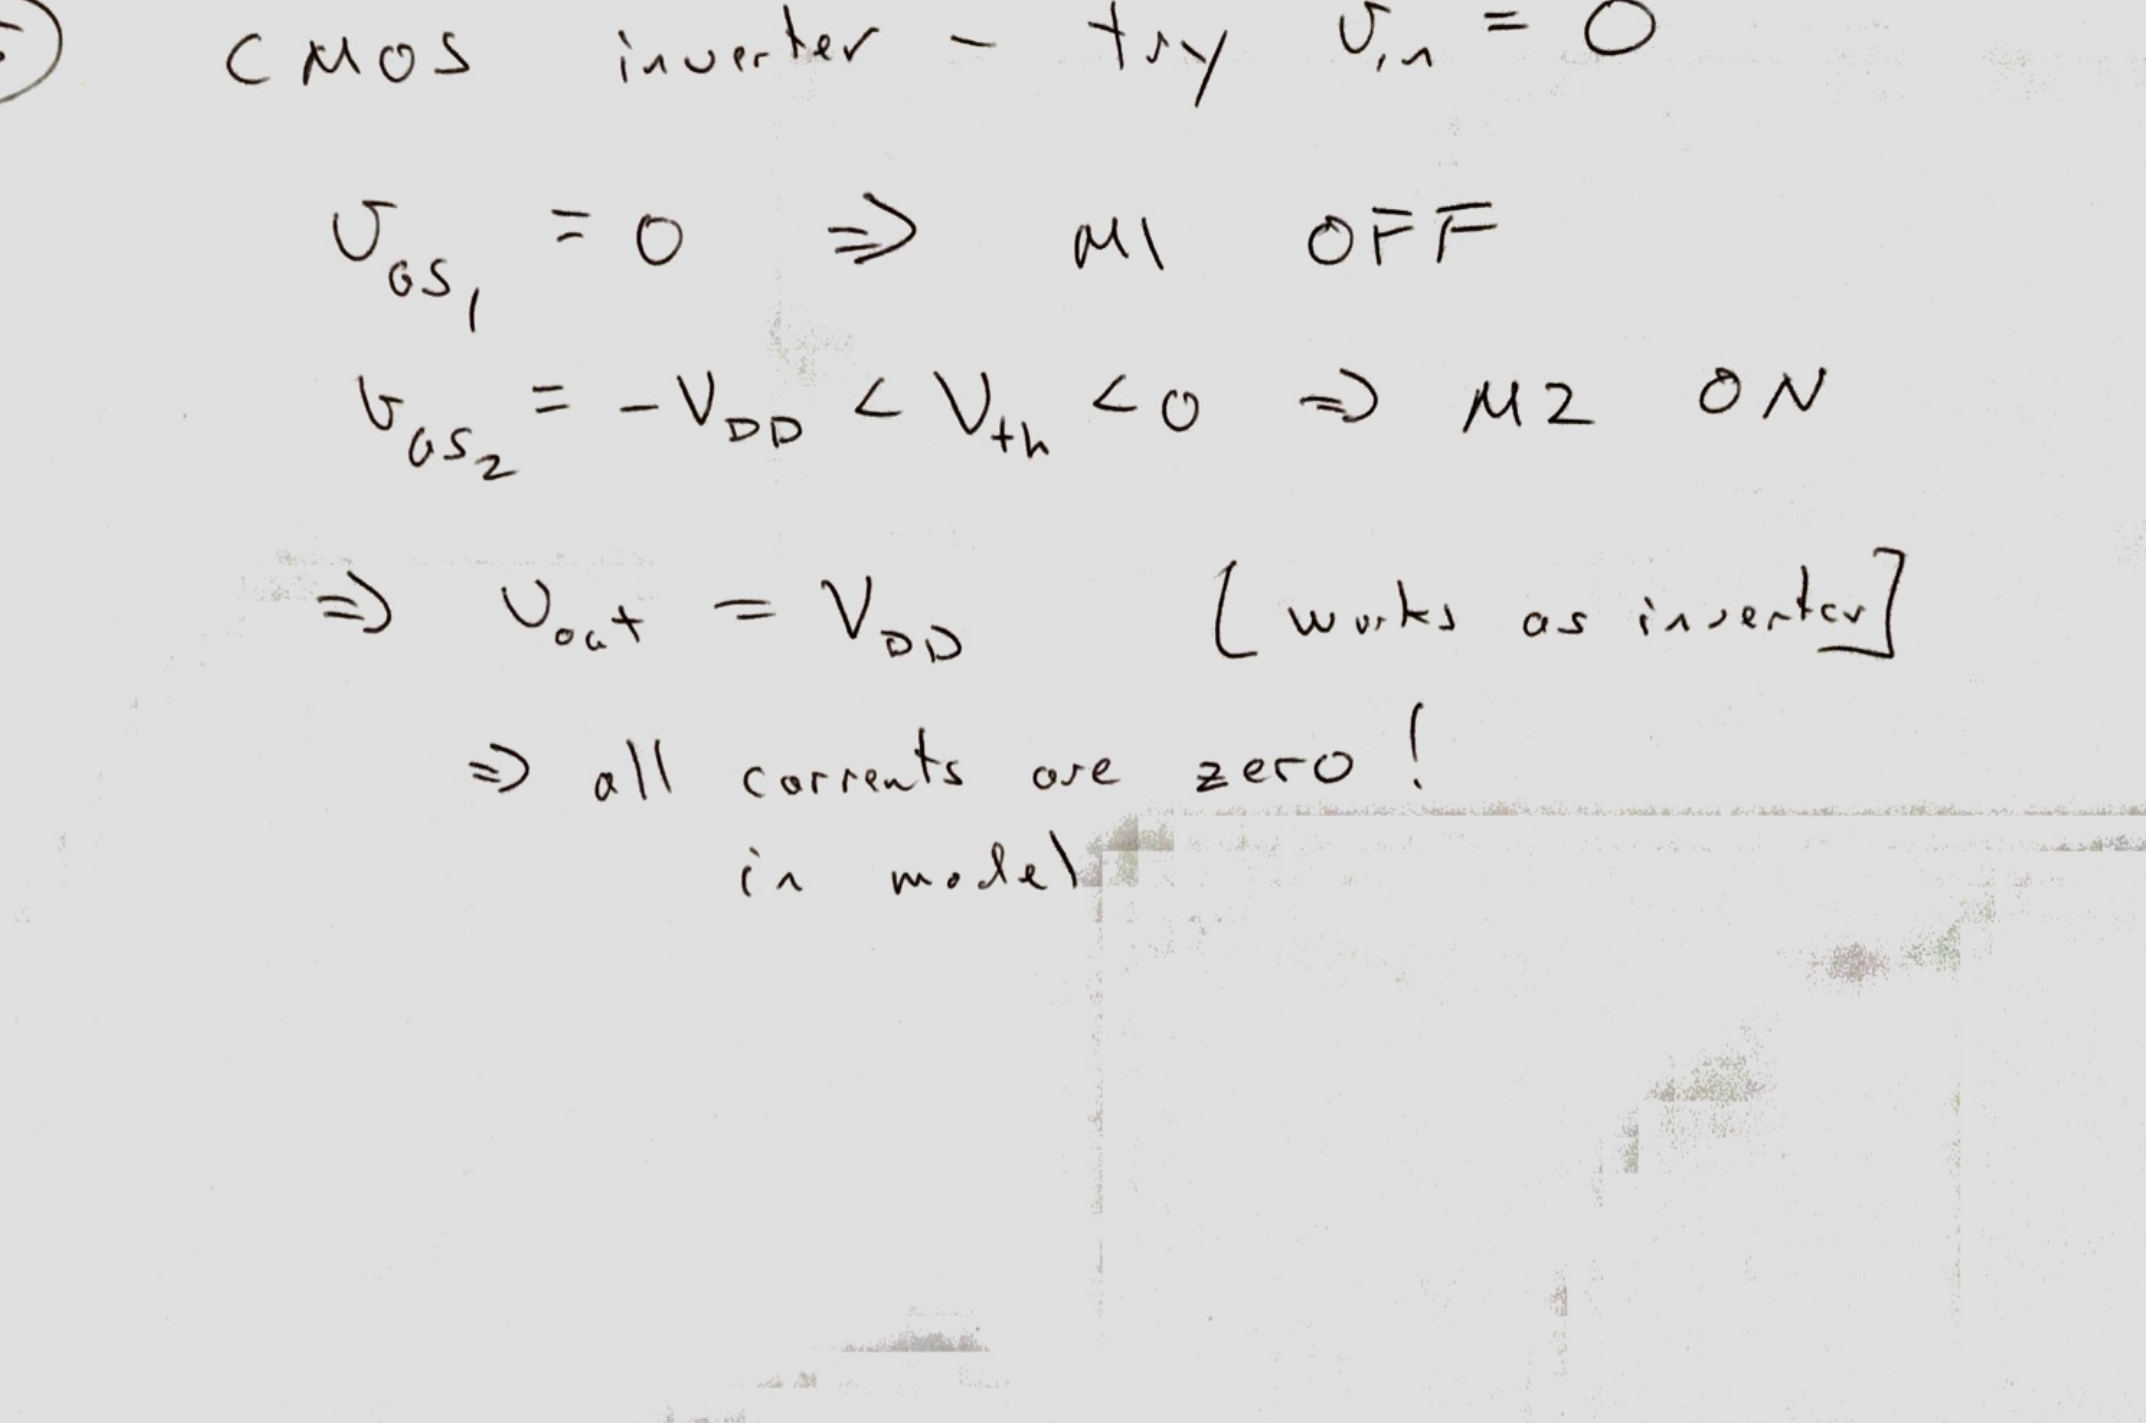 CMOS inverter - try Vin = 0
VGS1 = 0 ⇒ M1 OFF
VGS2 = -VDD < Vth < 0 ⇒ M2 ON
⇒ Vout = VDD [works as inverter]
⇒ all currents are zero!
in model